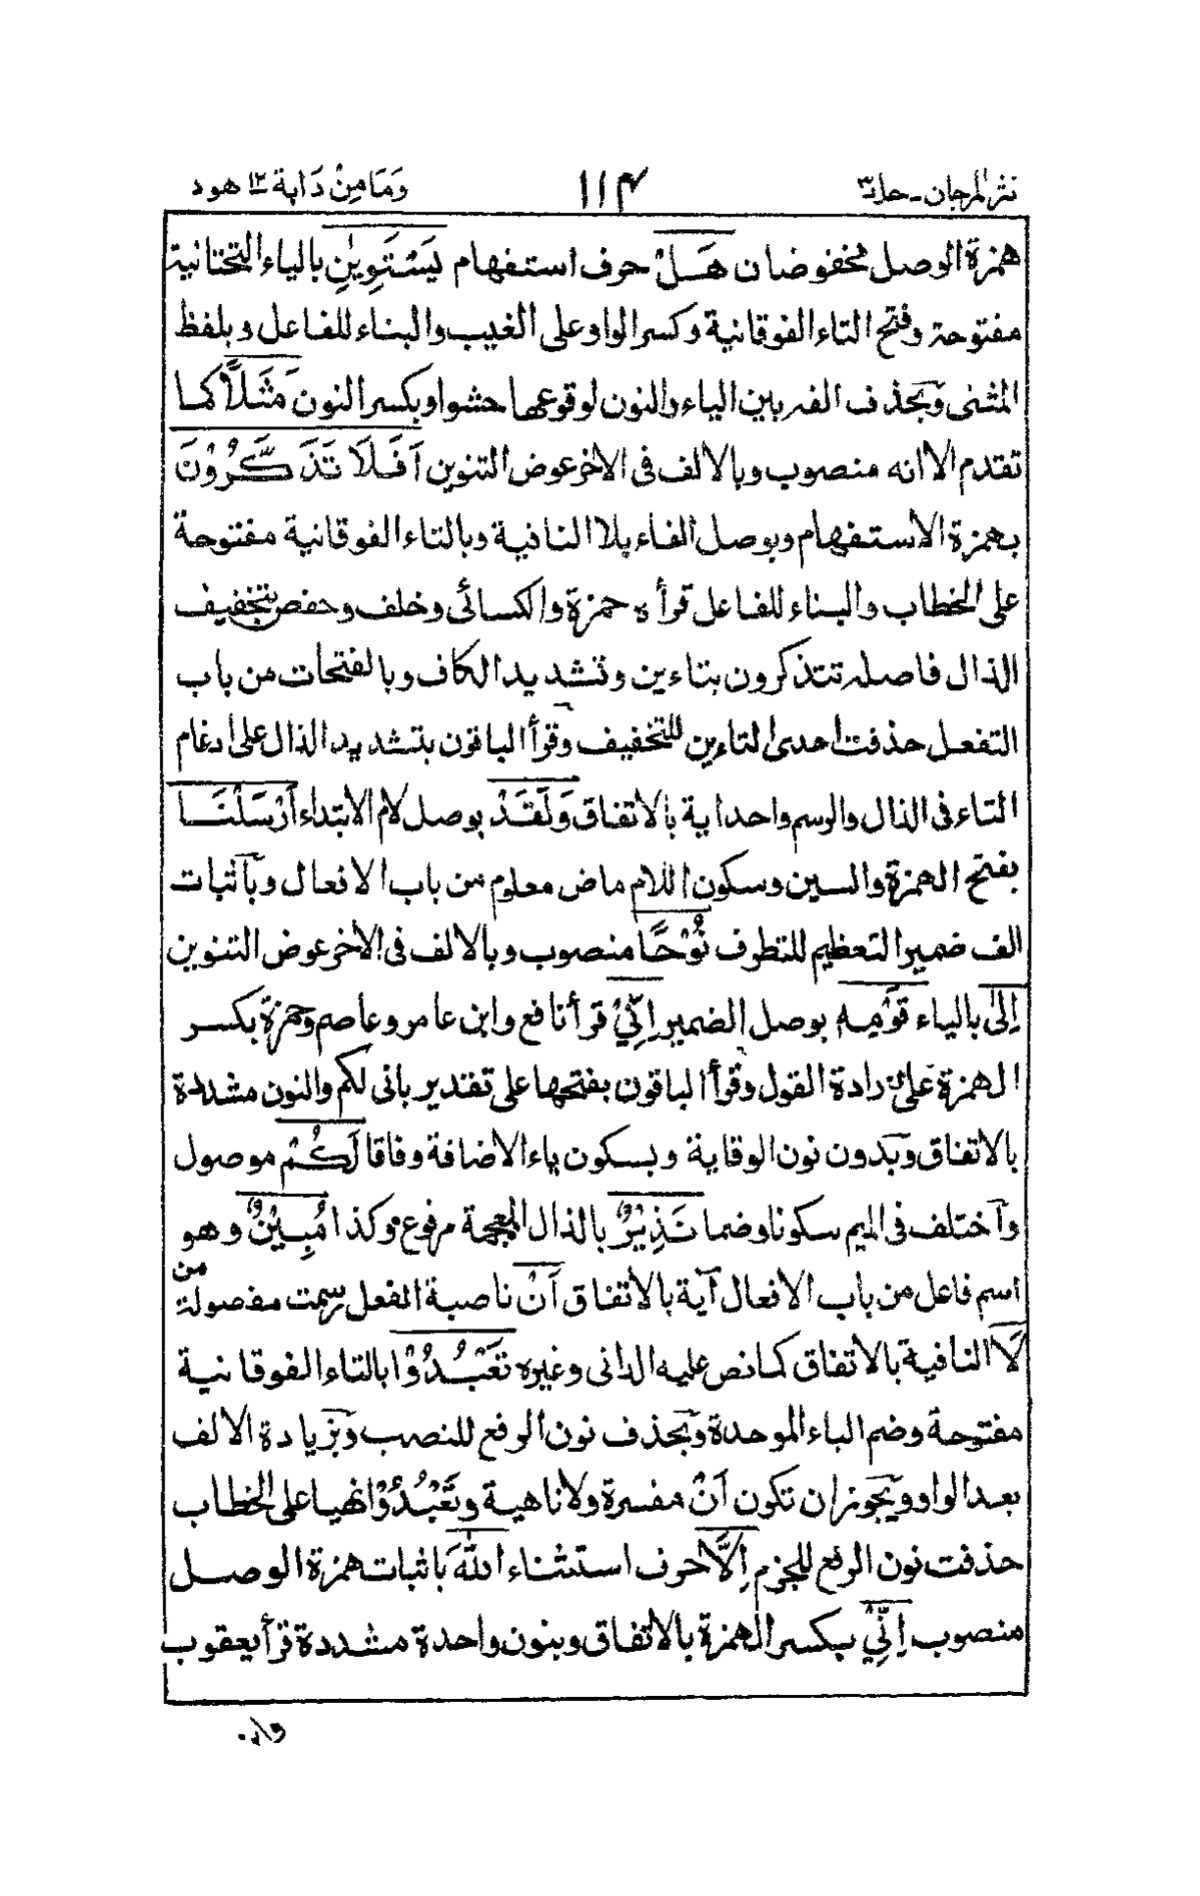 نثر المرجان ـ جلد ٣ ١١٤ وَمَا مِنْ دَابة ١٢ هود
همزة الوصل مخفوضان هَلْ حرف استفهام يَسْتَوِيٰنِ بالياء التحتانية
مفتوحة وفتح التاء الفوقانية وكسر الواو على الغيب والبناء للفاعل وبلفظ
المثنى وبحذف الفه بين الياء والنون لوقوعها حشوا وبكسر النون مَثَلًا كما
تقدم الا انه منصوب وبالالف فى الاخر عوض التنوين اَفَلَا تَذَكَّرُوْنَ
بهمزة الاستفهام وبوصل الفاء بلا النافية وبالتاء الفوقانية مفتوحة
على الخطاب والبناء للفاعل قرأه حمزة والكسائى وخلف وحفص بتخفيف
الذال فاصله تتذكرون بتاءين وتشديد الكاف وبالفتحات من باب
التفعل حذفت احدى التاءين للتخفيف وقرأ الباقون بتشديد الذال على ادغام
التاء فى الذال والرسم واحد اية بالاتفاق وَلَقَدْ بوصل لام الابتداء اَرْسَلْنَا
بفتح الهمزة والسين وسكون اللام ماض معلوم من باب الافعال وبآثبات
الف ضمير التعظيم للتطرف نُوْحًا منصوب وبالالف فى الاخر عوض التنوين
اِلٰى بالياء قَوْمِهٖ بوصل الضمير اِنِّيْ قرأ نافع وابن عامر وعاصم وحمزة بكسر
الهمزة على ارادة القول وقرأ الباقون بفتحها على تقدير بانى لكم والنون مشددة
بالاتفاق وبدون نون الوقاية وبسكون ياء الاضافة وفاقا لَكُمْ موصول
وآختلف فى الميم سكونا وضما نَذِيْرٌ بالذال المعجمة مرفوع وكذا مُبِيْنٌ وهو
اسم فاعل من باب الافعال آية بالاتفاق اَنْ ناصبة الفعل رسمت مفصولة من
لَا النافية بالاتفاق كما نص عليه الدانى وغيره تَعْبُدُوْا بالتاء الفوقانية
مفتوحة وضم الباء الموحدة وبحذف نون الرفع للنصب وبزيادة الالف
بعد الواو ويجوز ان تكون اَنْ مفسرة ولا ناهية وتَعْبُدُوْا نهيا على الخطاب
حذفت نون الرفع للجزم اِلَّا حرف استثناء اللّٰهَ باثبات همزة الوصل
منصوب اِنِّيْ بكسر الهمزة بالاتفاق وبنون واحدة مشددة قرأ يعقوب